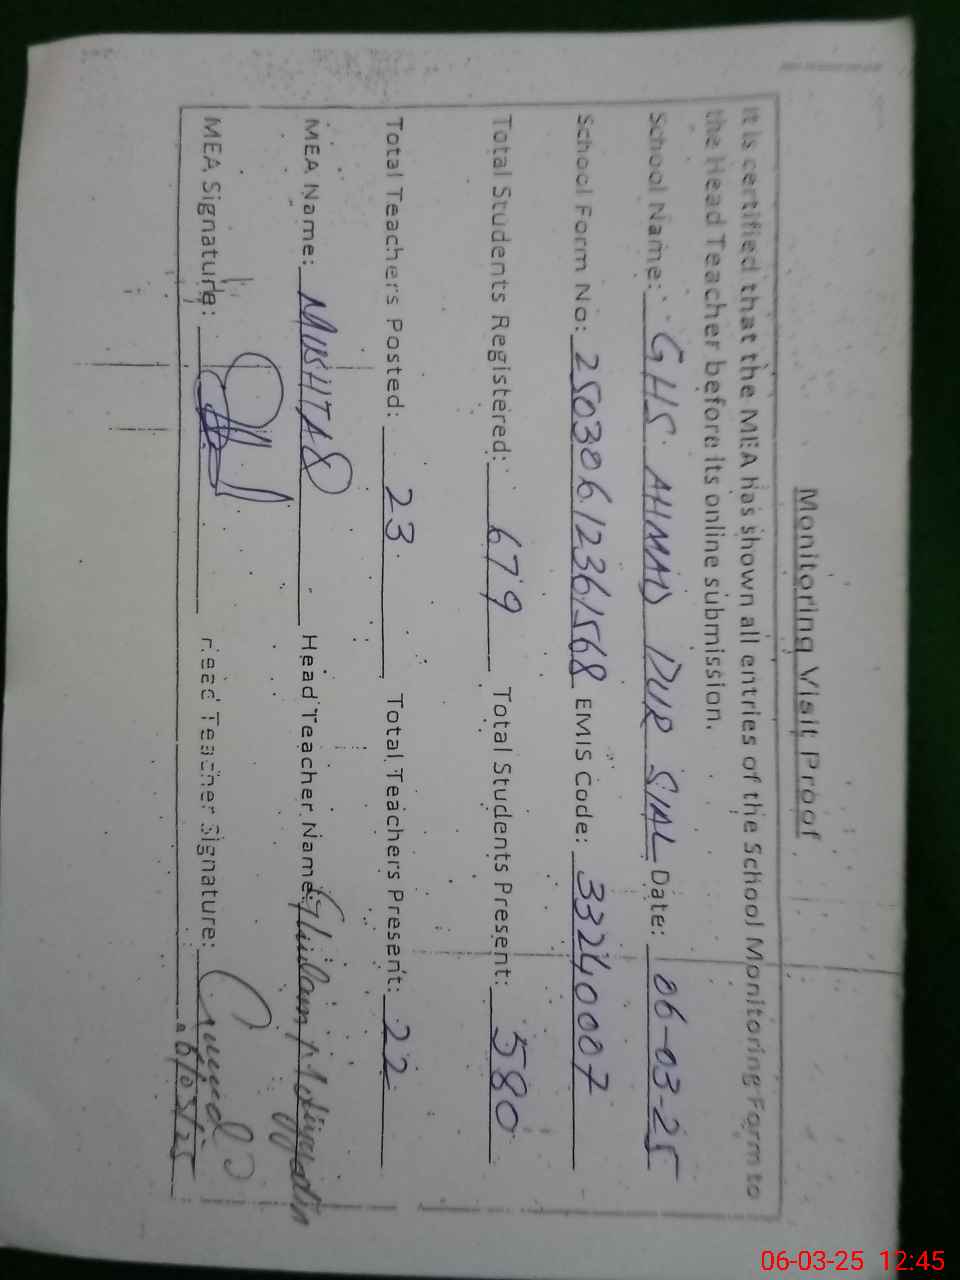 Monitoring Visit Proof
It is certified that the MEA has shown all entries of the School Monitoring Form to
the Head Teacher before its online submission.
School Name: GHS AHMAD PUR SIAL Date: 06-03-25
School Form No: 25030612361568 EMIS Code: 33240007
Total Students Registered: 679 Total Students Present: 580
Total Teachers Posted: 23 Total Teachers Present: 22
MEA Name: MUSHTAQ Head Teacher Name: Ghulam Mohiyyudin
MEA Signature: Head Teacher Signature:
06/03/25
06-03-25 12:45